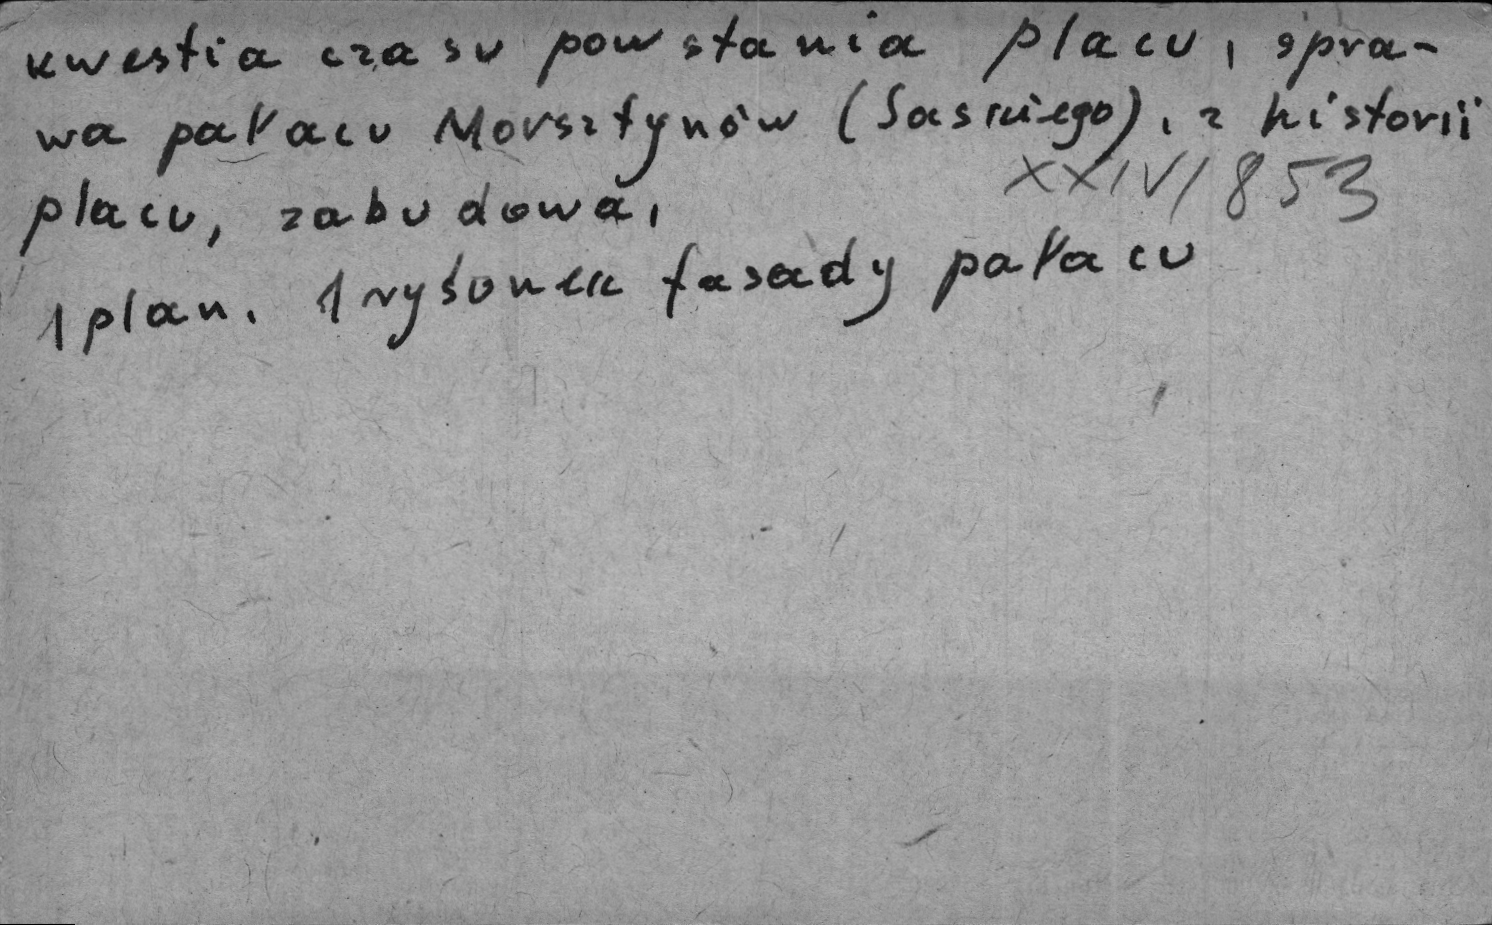 kwestia czasu powstania placu, spra-
wa pałacu Morsztynów (Saskiego), z historii
XXIV/853
placu, zabudowa,
1 plan. 1 rysunek fasady pałacu